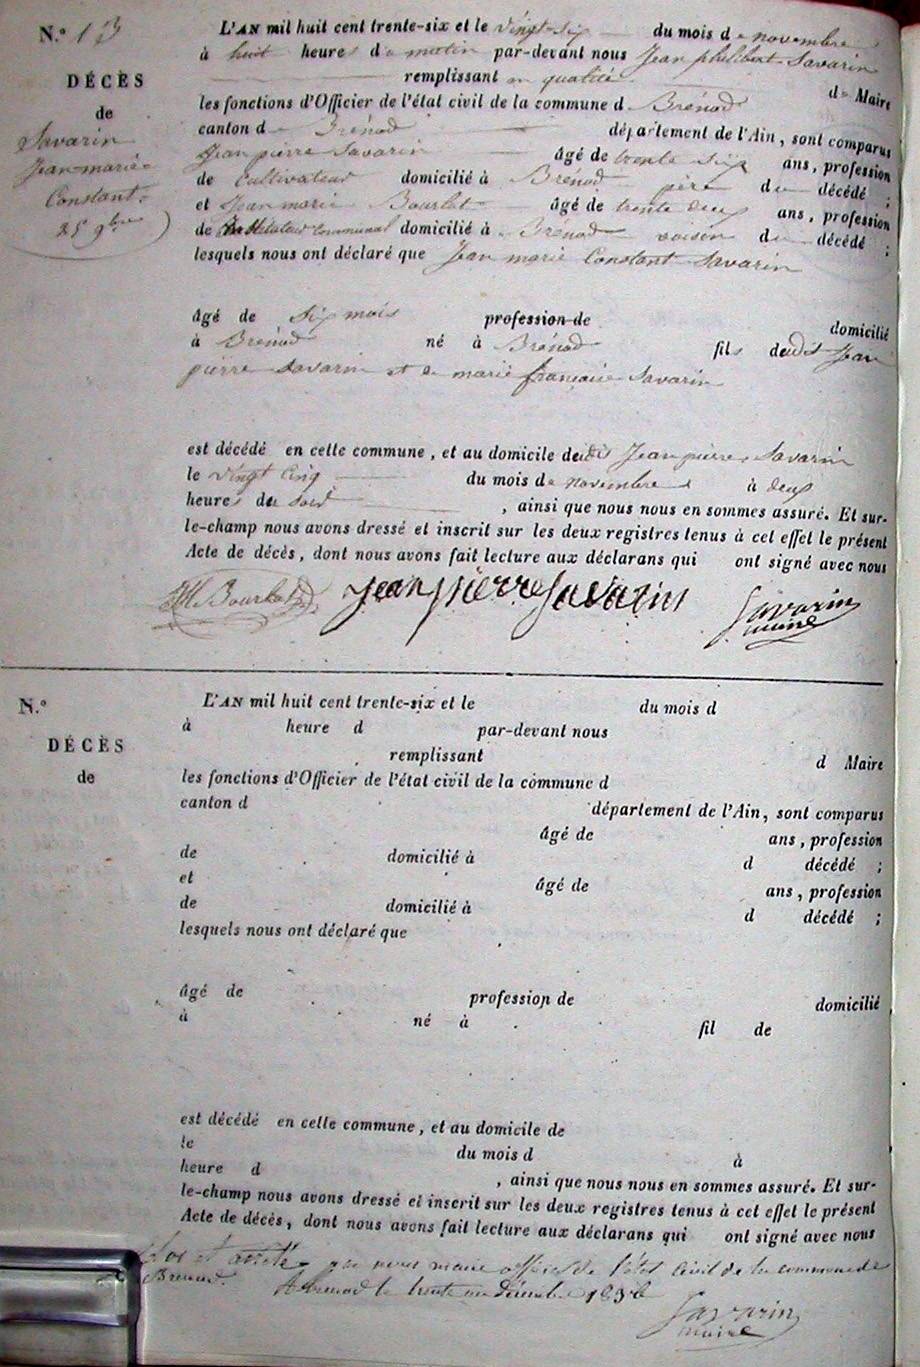 N.º 13
DÉCÈS
de
Savarin
Jean-marie-
Constant.
25 9bre
L'AN mil huit cent trente-six et le vingt-six du mois de novembre
à huit heures de matin par-devant nous Jean philibert Savarin
remplissant en qualité de Maire
les fonctions d'Officier de l'état civil de la commune d Brénod
canton d Brénod département de l'Ain, sont comparus
Jean pierre Savarin âgé de trente six ans, profession
de Cultivateur domicilié à Brénod père du décédé ;
et Jean marie Bourlot âgé de trente deux ans, profession
de communal domicilié à Brénod voisin du décédé ;
lesquels nous ont déclaré que Jean marie Constant Savarin
âgé de six mois profession de domicilié
à Brénod né à Brénod fils dudit Jean
pierre Savarin et de marie françoise Savarin
est décédé en cette commune, et au domicile dudit Jean pierre Savarin
le vingt cinq du mois de novembre à deux
heures du soir , ainsi que nous nous en sommes assuré. Et sur-
le-champ nous avons dressé et inscrit sur les deux registres tenus à cet effet le présent
Acte de décès, dont nous avons fait lecture aux déclarans qui ont signé avec nous
Bourlot Jean pierre Savarin Savarin
maire
N.º
DÉCÈS
de
L'AN mil huit cent trente-six et le du mois d
à heure d par-devant nous
remplissant d Maire
les fonctions d'Officier de l'état civil de la commune d
canton d département de l'Ain, sont comparus
âgé de ans, profession
de domicilié à d décédé ;
et âgé de ans, profession
de domicilié à d décédé ;
lesquels nous ont déclaré que
âgé de profession de domicilié
à né à fil de
est décédé en cette commune, et au domicile de
le du mois d à
heure d , ainsi que nous nous en sommes assuré. Et sur-
le-champ nous avons dressé et inscrit sur les deux registres tenus à cet effet le présent
Acte de décès, dont nous avons fait lecture aux déclarans qui ont signé avec nous
Clos et arrêté par nous maire officier de l'état Civil de la commune de
Brenod. A brenod le trente un décembre 1836
Savarin
maire